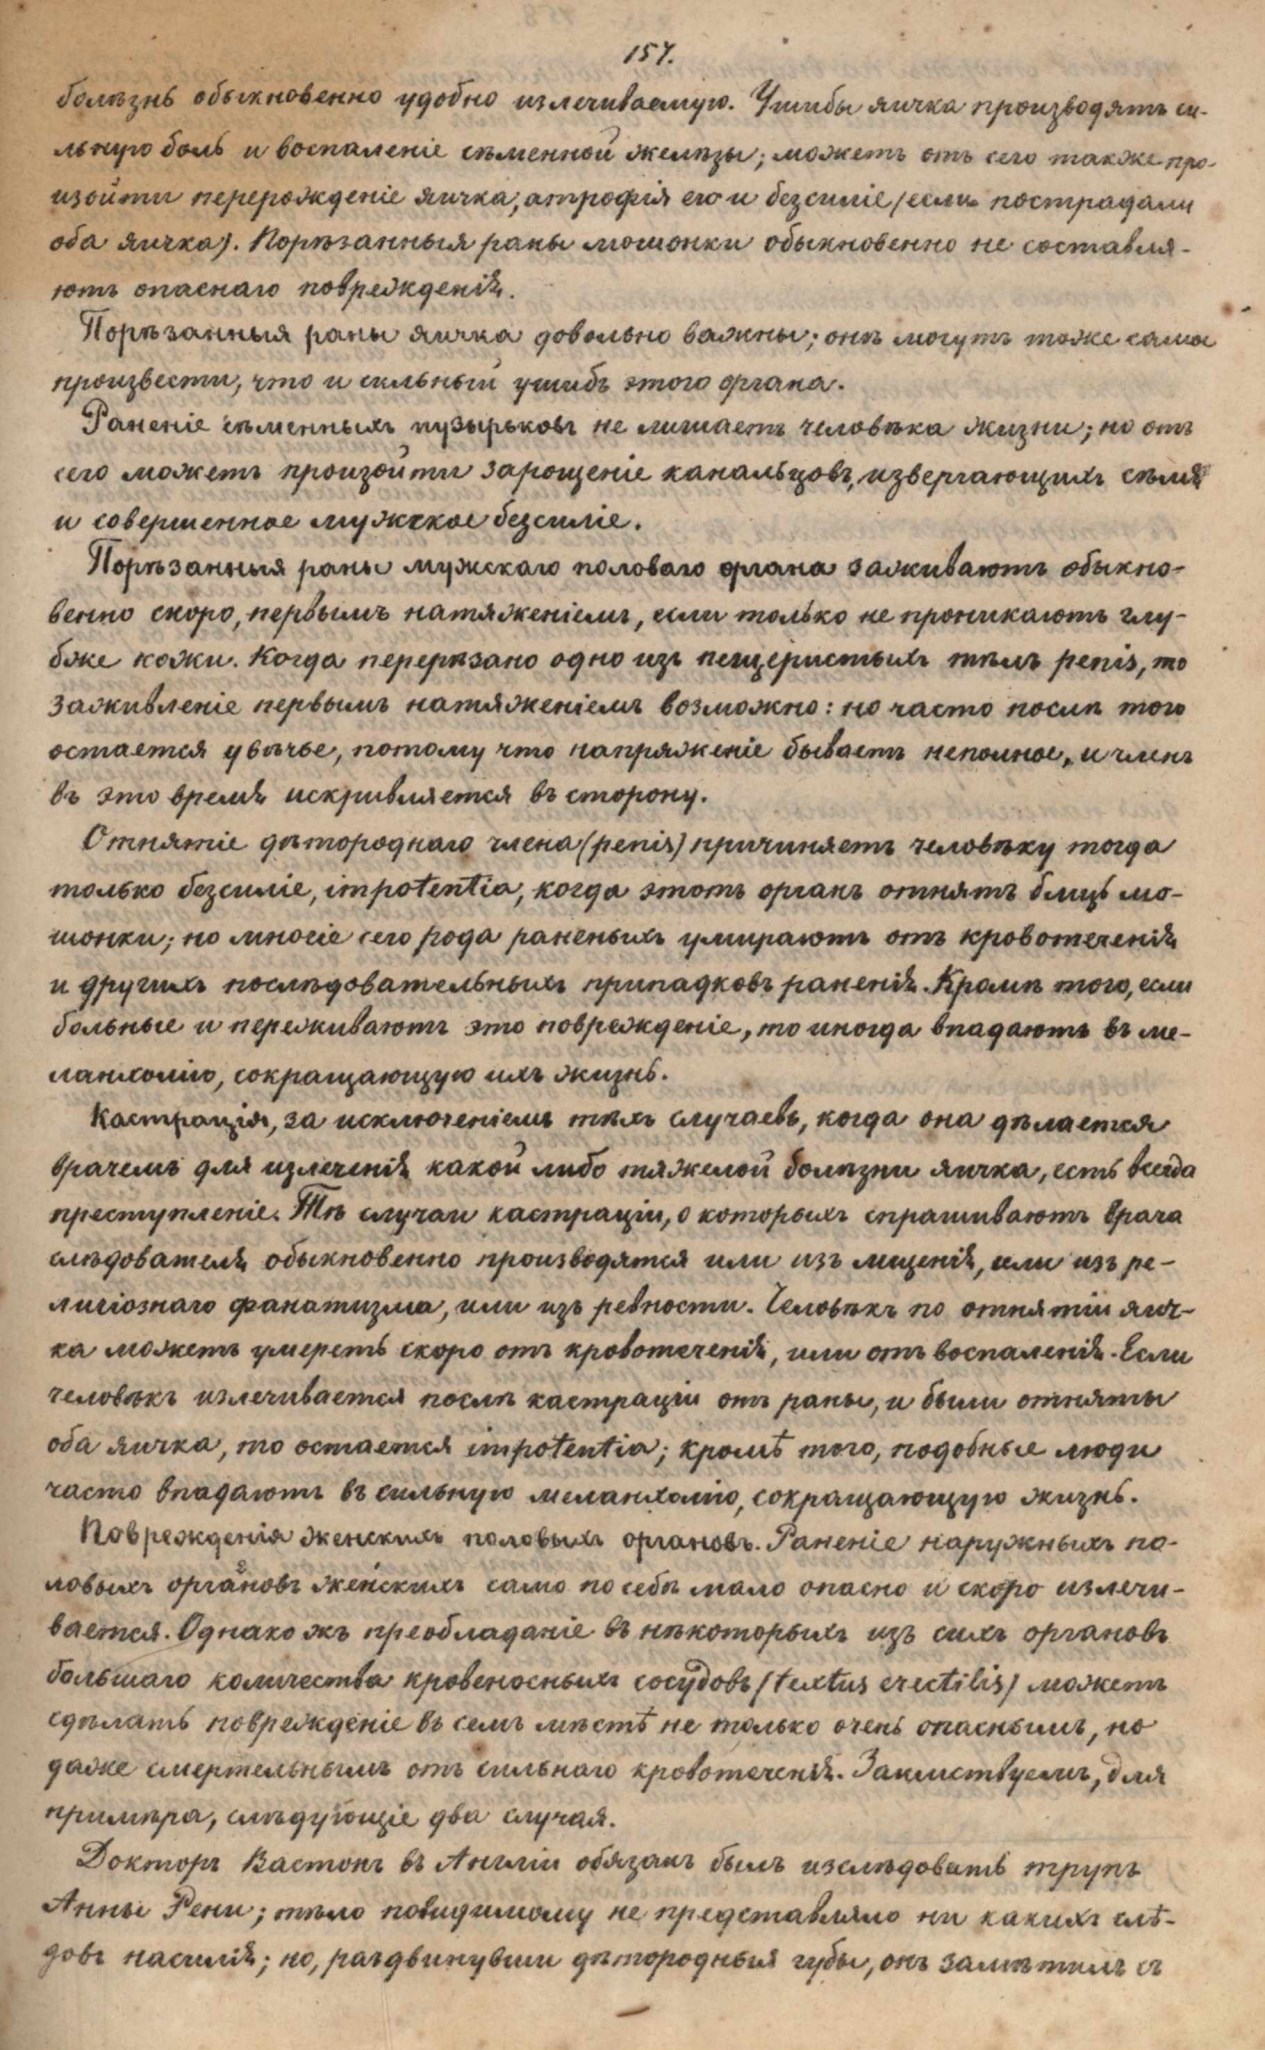 157.
болѣзнь обыкновенно удобно излечиваемую. Ушибы яичка производятъ си-
льную боль и воспаленіе сѣменной железы; можетъ отъ сего также про-
изойти перерожденіе яичка, атрофія его и безсиліе (если пострадали
оба яичка). Порѣзанныя раны мошонки обыкновенно не составля-
ютъ опаснаго поврежденія.
Порѣзанныя раны яичка довольно важны; онѣ могутъ тоже самое
произвести, что и сильный ушибъ этого органа.
Раненіе сѣменныхъ пузырьковъ не лишаетъ человѣка жизни; но отъ
сего можетъ произойти зарощеніе канальцовъ, извергающихъ сѣмя
и совершенное мужское безсиліе.
Порѣзанныя раны мужскаго половаго органа заживаютъ обыкно-
венно скоро, первымъ натяженіемъ, если только не проникаютъ глу-
бже кожи. Когда перерѣзано одно изъ пещеристыхъ тѣлъ penis, то
заживленіе первымъ натяженіемъ возможно: но часто послѣ того
остается увѣчье, потому что напряженіе бываетъ неполное, и членъ
въ это время искривляется въ сторону.
Отнятіе дѣтороднаго члена (penis) причиняетъ человѣку тогда
только безсиліе, impotentia, когда этотъ органъ отнятъ близь мо-
шонки; но многіе сего рода раненыхъ умираютъ отъ кровотеченія
и другихъ послѣдовательныхъ припадковъ раненія. Кромѣ того, если
больные и переживаютъ это поврежденіе, то иногда впадаютъ въ ме-
ланхолію, сокращающую ихъ жизнь.
Кастрація, за исключеніемъ тѣхъ случаевъ, когда она дѣлается
врачемъ для излеченія какой либо тяжелой болѣзни яичка, есть всегда
преступленіе. Тѣ случаи кастраціи, о которыхъ спрашиваютъ врача
слѣдователя обыкновенно производятся или изъ мщенія, или изъ ре-
лигіознаго фанатизма, или изъ ревности. Человѣкъ по отнятіи яич-
ка можетъ умереть скоро отъ кровотеченія, или отъ воспаленія. Если
человѣкъ излечивается послѣ кастраціи отъ раны, и были отняты
оба яичка, то остается impotentia; кромѣ того, подобные люди
часто впадаютъ въ сильную меланхолію, сокращающую жизнь.
Поврежденія женскихъ половыхъ органовъ. Раненіе наружныхъ по-
ловыхъ органовъ женскихъ само по себѣ мало опасно и скоро излечи-
вается. Однако жъ преобладаніе въ нѣкоторыхъ изъ сихъ органовъ
большаго количества кровеносныхъ сосудовъ (textus erectilis) можетъ
сдѣлать поврежденіе въ семъ мѣстѣ не только очень опаснымъ, но
даже смертельнымъ отъ сильнаго кровотеченія. Заимствуемъ, для
примѣра, слѣдующіе два случая.
Докторъ Вастонъ въ Англіи обязанъ былъ изслѣдовать трупъ
Анны Рени; тѣло повидимому не представляло ни какихъ слѣ-
довъ насилія; но, раздвинувши дѣтородныя губы, онъ замѣтилъ съ